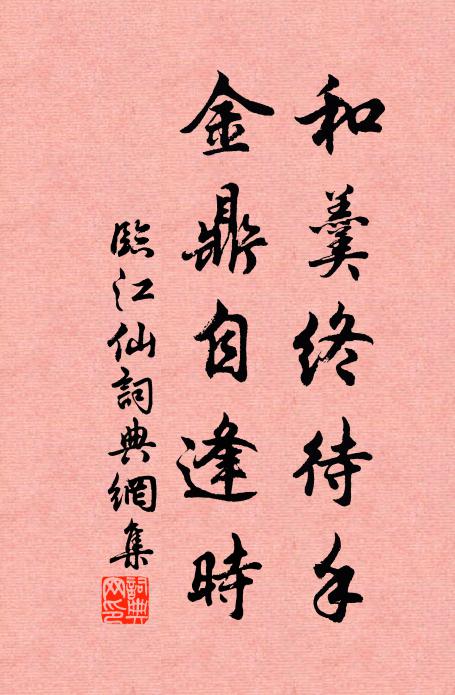 和羹終待手
金鼎自逢時
臨江仙詞典網集
詞典
网印